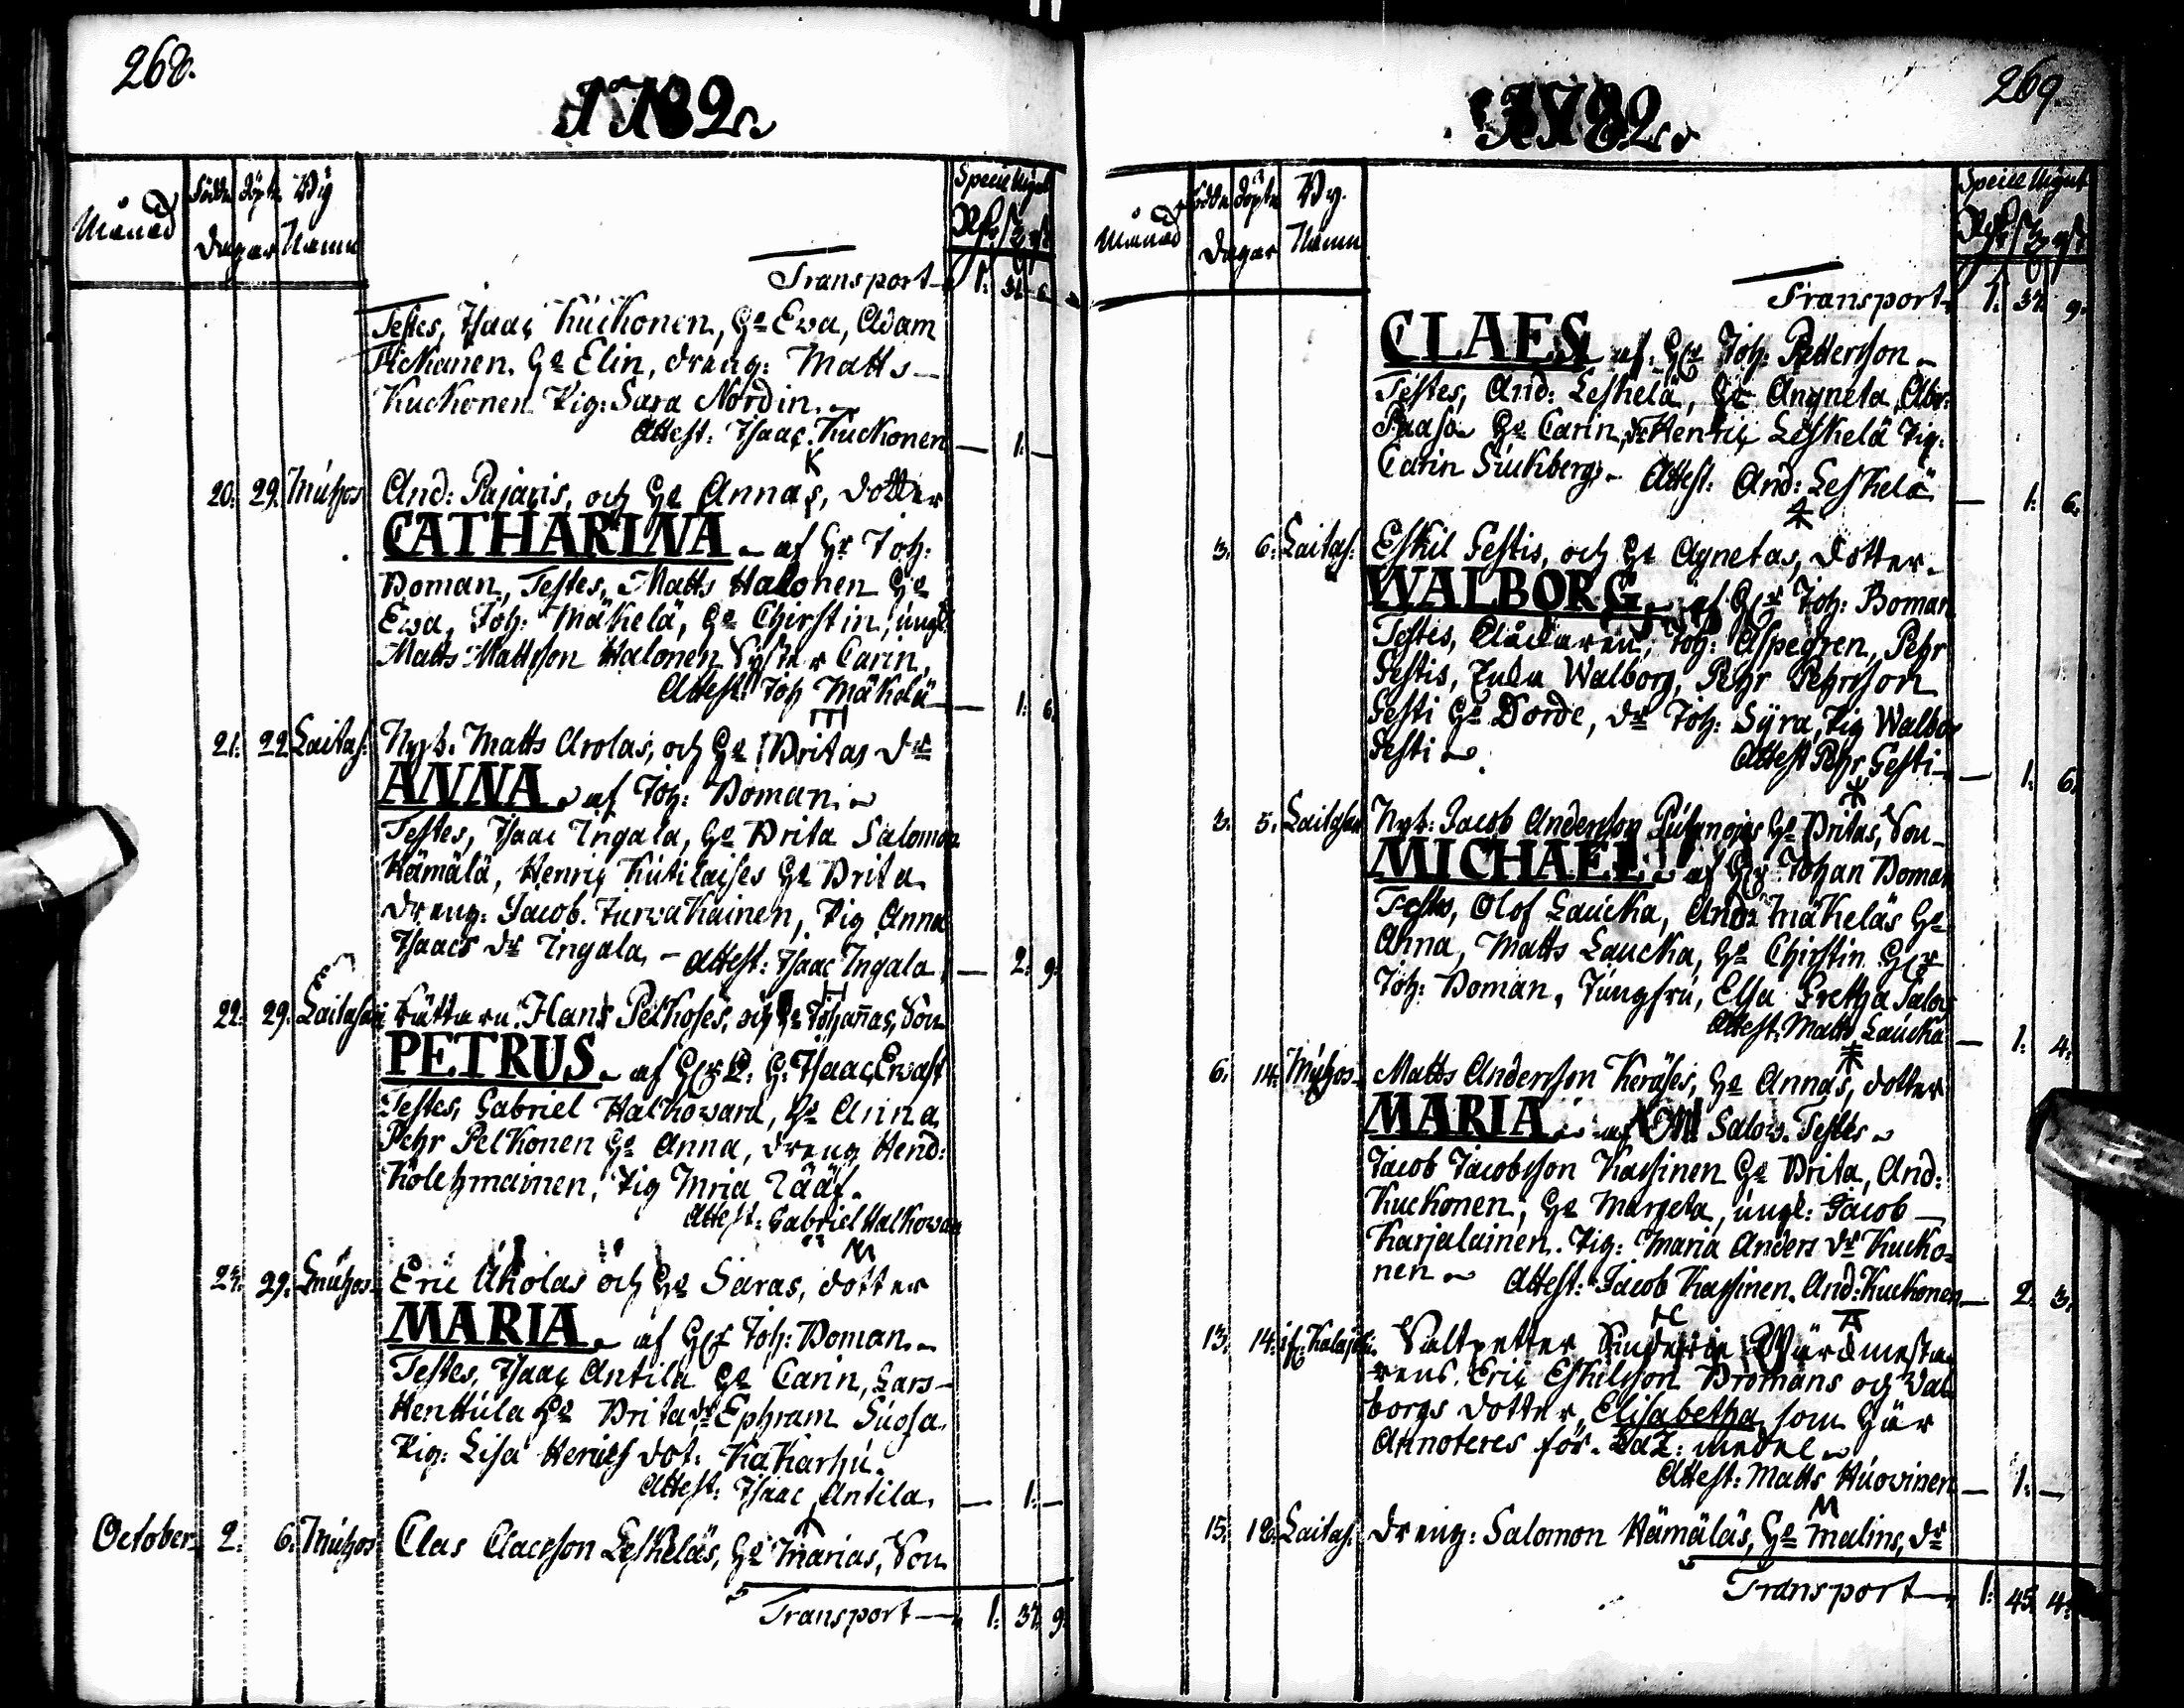 268.
1782.
Månad
Födde
Döpte
By
Dagar
Namn
Specie
Transport 1: 31. 6.
Testes, Isaac Kuckonen, Ho Ewa, Adam
Ho Elin, dreng: Matts
Kuckonen Pig: Sara Nordin.
Attest: Isaac Kuckonen — 1. —
20: 29. Muhos And: Pajaris, och Ho Annas, dotter
CATHARINA af Hr Joh:
Boman, Testes, Matts Halonen Ho
Ewa, Joh: Mäkelä, Ho Chirstin, ungk
Matts Mattsson Halonen Syster Carin,
Attest: Joh Mäkelä — 1. 6.
21: 22. Laitas: Nyb. Matts Arolas, och Ho Britas dr
ANNA af Joh: Boman.
Testes, Isaac Ingala, Ho Brita Salomon
Hämälä, Henric Kutilaises Ho Brita
dreng: Jacob. Turwakainen, Pig Anna
Isaacs dr Ingala, – Attest: Isaac Ingala — 2. 9.
22. 29. Laitasari Hans Pelkoses, och Ho Johannas, Son
PETRUS af Isaac Ewast
Testes, Gabriel Halkowara, Ho Anna
Pehr Pelkonen Ho Anna, dreng Hend:
Kolehmainen, Pig Mria Rääf.
Attest: Gabriel Halkowara
29. Muhos Eric Aholas och Ho Saras, dotter
MARIA af Hr Joh: Boman.
Testes, Isaac Antila Ho Carin, Lars
Henttula Ho Brita, dr Ephram Suosa.
Pig: Lisa dot: Kakarhu.
Attest: Isaac Antila. — 1. —
October 2. 6. Muhos Clas Claesson Leskeläs, Ho Marias, Son
Transport 1: 37. 9.
269
1782.
Månad
Födde
Döpte
By.
Dagar
Namn
Specie
Transport 1. 37. 9.
CLAES af Hr Joh: Pettersson
Testes, And: Leskelä, Ho Angneta, Abr:
Paaso Ho Carin, dr Henric Leskelä Pig:
Carin Attest: And: Leskelä — 1. 6.
3. 6. Laitas: Eskil Gestis, och Ho Agnetas, dotter.
WALBORG af Hr Joh: Boman
Testis, Klåckaren, Joh: Aspegren, Pehr
Gestis, Enka Walborg, Pehr Pehrsson
Gesti Ho Dorde, dr Joh: Syra, Pig Walbor
Gesti Attest Pehr Gesti — 1. 6.
5. Laitasar Nyb: Jacob Andersson Ho Britas, Son
MICHAEL af Hr Johan Boman
Testes, Olof Laucka, And: Mäkeläs Ho
Anna, Matts Laucka, Ho Chirstin Hr
Joh: Boman, Jungfru, Elsa Gretha Salov
Attest: Matts Laucka — 1. 4.
6. 14. Muhos Matts Andersson Keräses, Ho Annas, dotter
MARIA af Salov. Testes
Jacob Jacobsson Kassinen Ho Brita, And:
Kuckonen, Ho Margeta, ungk: Jacob
Karjalainen. Pig: Maria Anders dr Kucko-
nen Attest: Jacob Kassinen. And: Kuckonen — 2. 3.
13. 14. Saltpetter
rens. Eric Eskilsson Bromans och Wal
borgs dotter, Elisabetha som här
Annoteres för medel
Attest: Matts Huovinen — 1. —
15. 18. Laitas: dreng: Salomon Hämäläs, Ho Malins, dr
Transport 1: 45. 4.